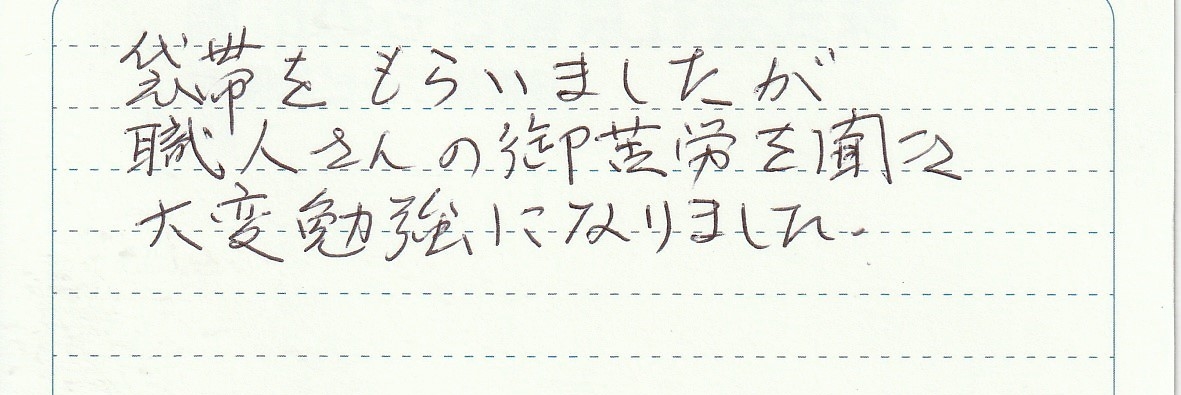 袋帯をもらいましたが
職人さんの御苦労を聞き
大変勉強になりました.